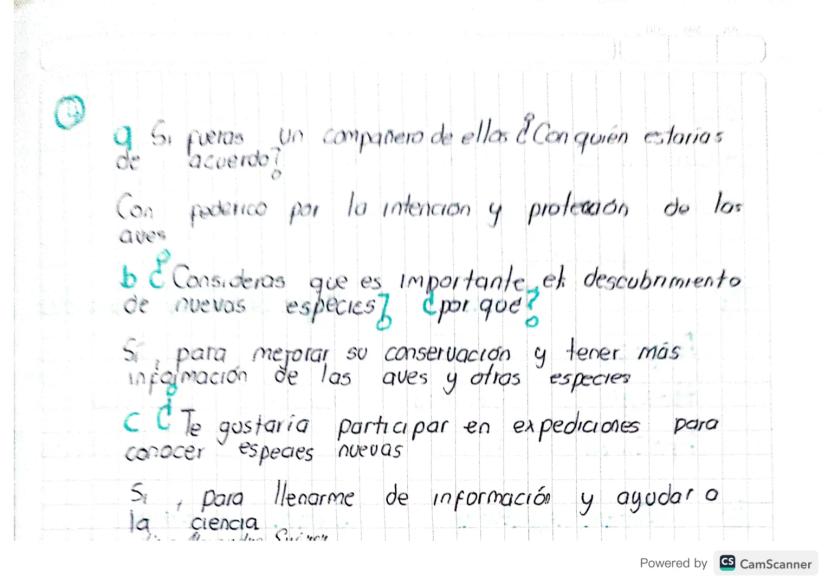 a Si fueras un compañero de ellos ¿Con quién estarias
de acuerdo?
Con federico por la intencion y protección de las
aves
b ¿Consideras que es importante el descubrimiento
de nuevas especies? ¿por qué?
Si, para mejorar su conservación y tener más
información de las aves y otras especies
c ¿Te gustaría participar en expediciones para
conocer especies nuevas
Si, para llenarme de información y ayudar a
la ciencia
Powered by CS CamScanner